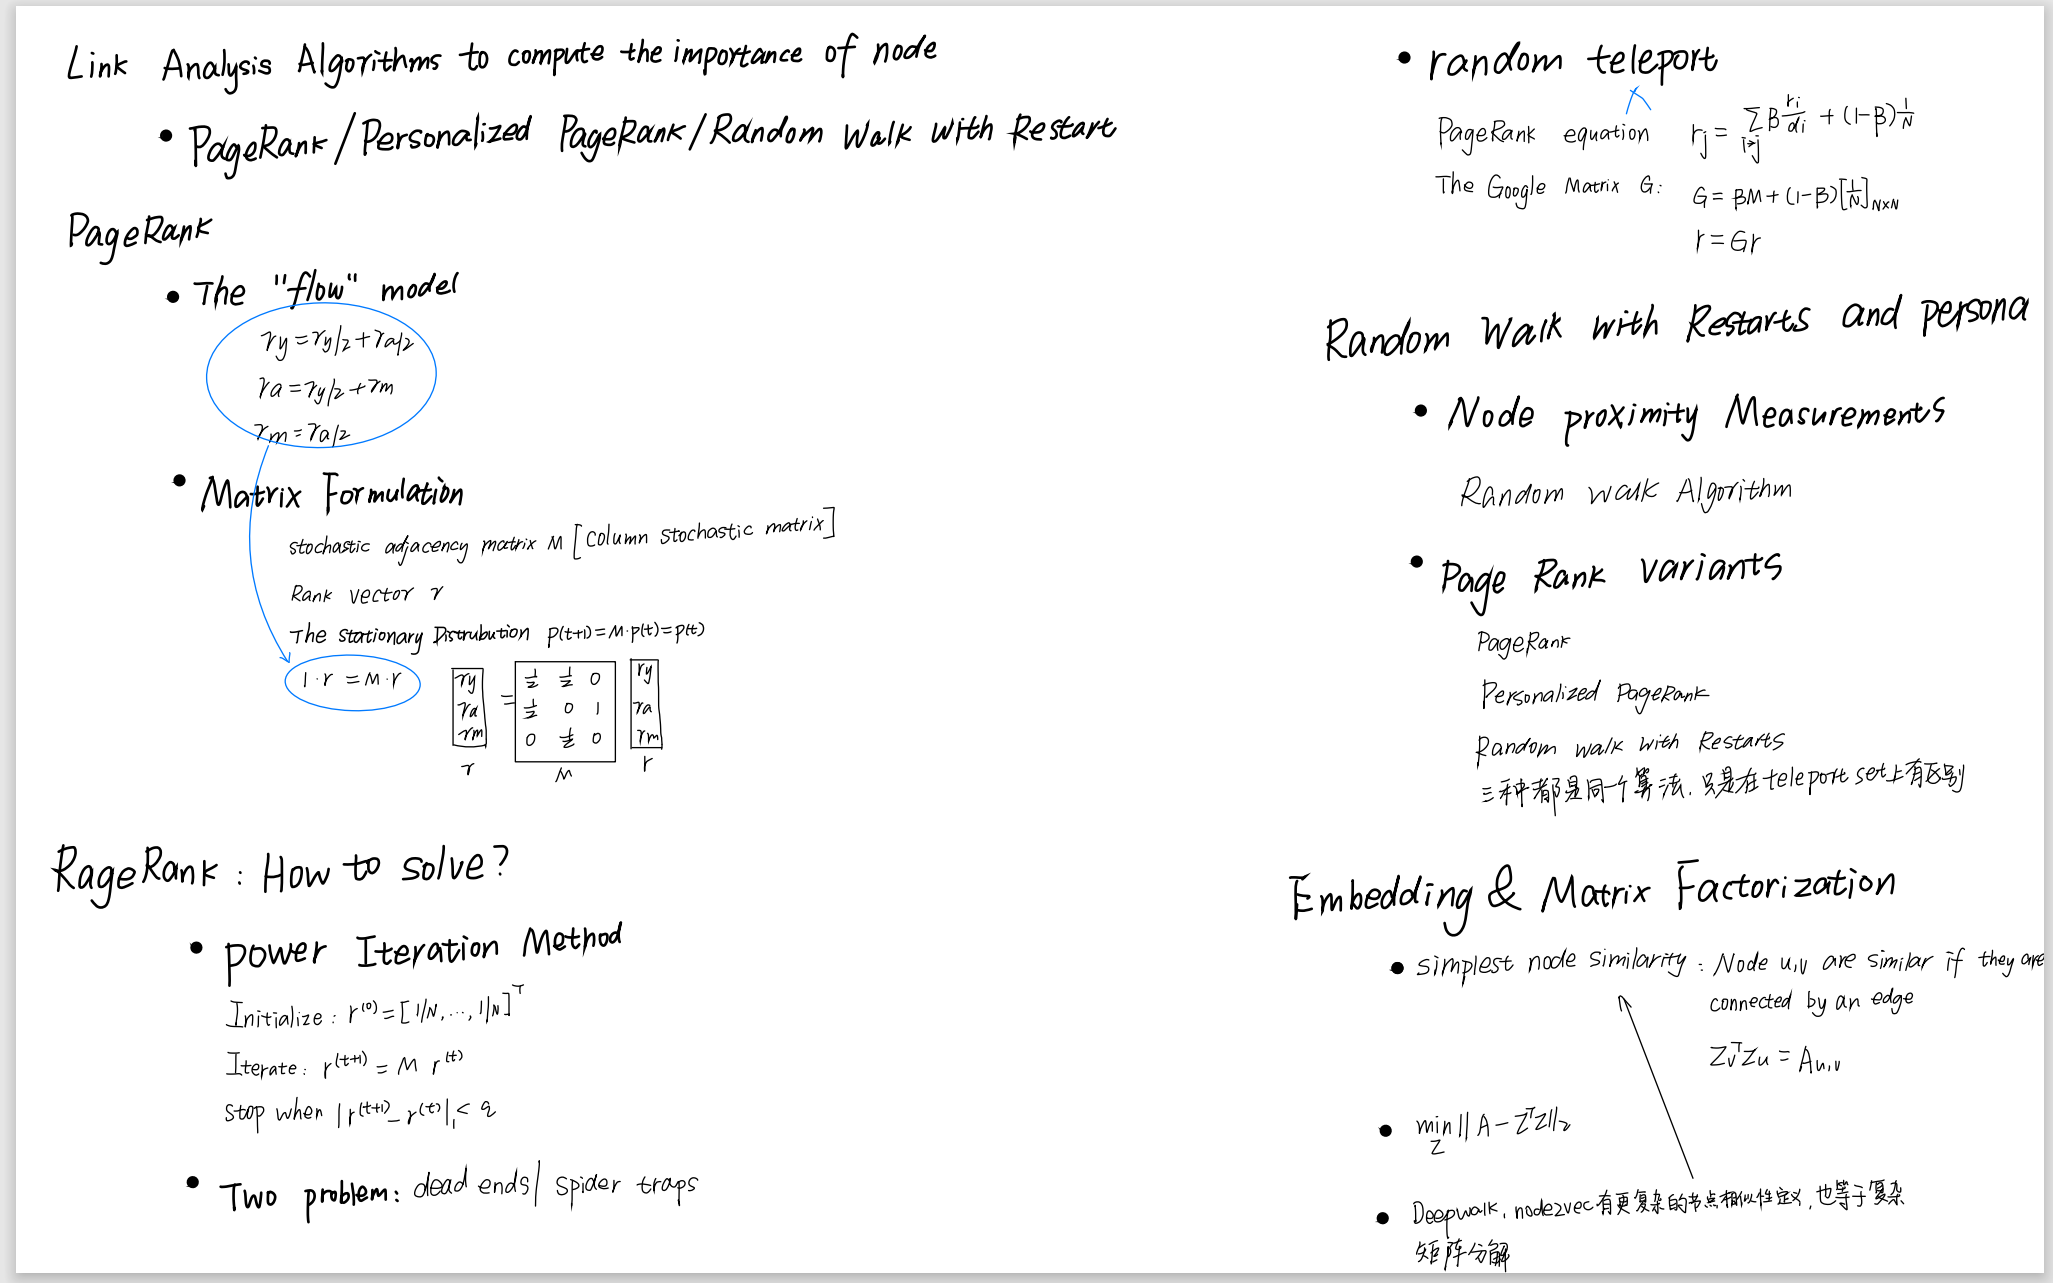 Link Analysis Algorithms to compute the importance of node
• PageRank/Personalized PageRank/Random Walk with Restart
PageRank
• The "flow" model
ry=ry/2+ra/2
ra=ry/2+rm
rm=ra/2
• Matrix Formulation
stochastic adjacency matrix M [column stochastic matrix]
Rank vector r
The stationary Distrubution p(t+1)=M·p(t)=p(t)
1·r=M·r
ry = ½ ½ 0 ry
ra ½ 0 1 ra
rm 0 ½ 0 rm
r M r
RageRank: How to solve?
• power Iteration Method
Initialize: r⁽⁰⁾=[1/N,...,1/N]ᵀ
Iterate: r⁽ᵗ⁺¹⁾=M r⁽ᵗ⁾
stop when |r⁽ᵗ⁺¹⁾-r⁽ᵗ⁾|₁<
• Two problem: dead ends/ spider traps
• random teleport
PageRank equation rj=∑i→j β ri/di +(1-β)1/N
The Google Matrix G: G=βM+(1-β)[1/N]N×N
r=Gr
Random Walk with Restarts and persona
• Node proximity Measurements
Random walk Algorithm
• Page Rank variants
PageRank
Personalized PageRank
Random walk with Restarts
三种都是同一个算法.只是在teleport set上有区别
Embedding & Matrix Factorization
• simplest node similarity: Node u,v are similar if they are
connected by an edge
ZvᵀZu=Au,v
• min Z ||A-ZᵀZ||₂
• Deepwalk, node2vec有更复杂的节点相似性定义,也等于复杂
矩阵分解